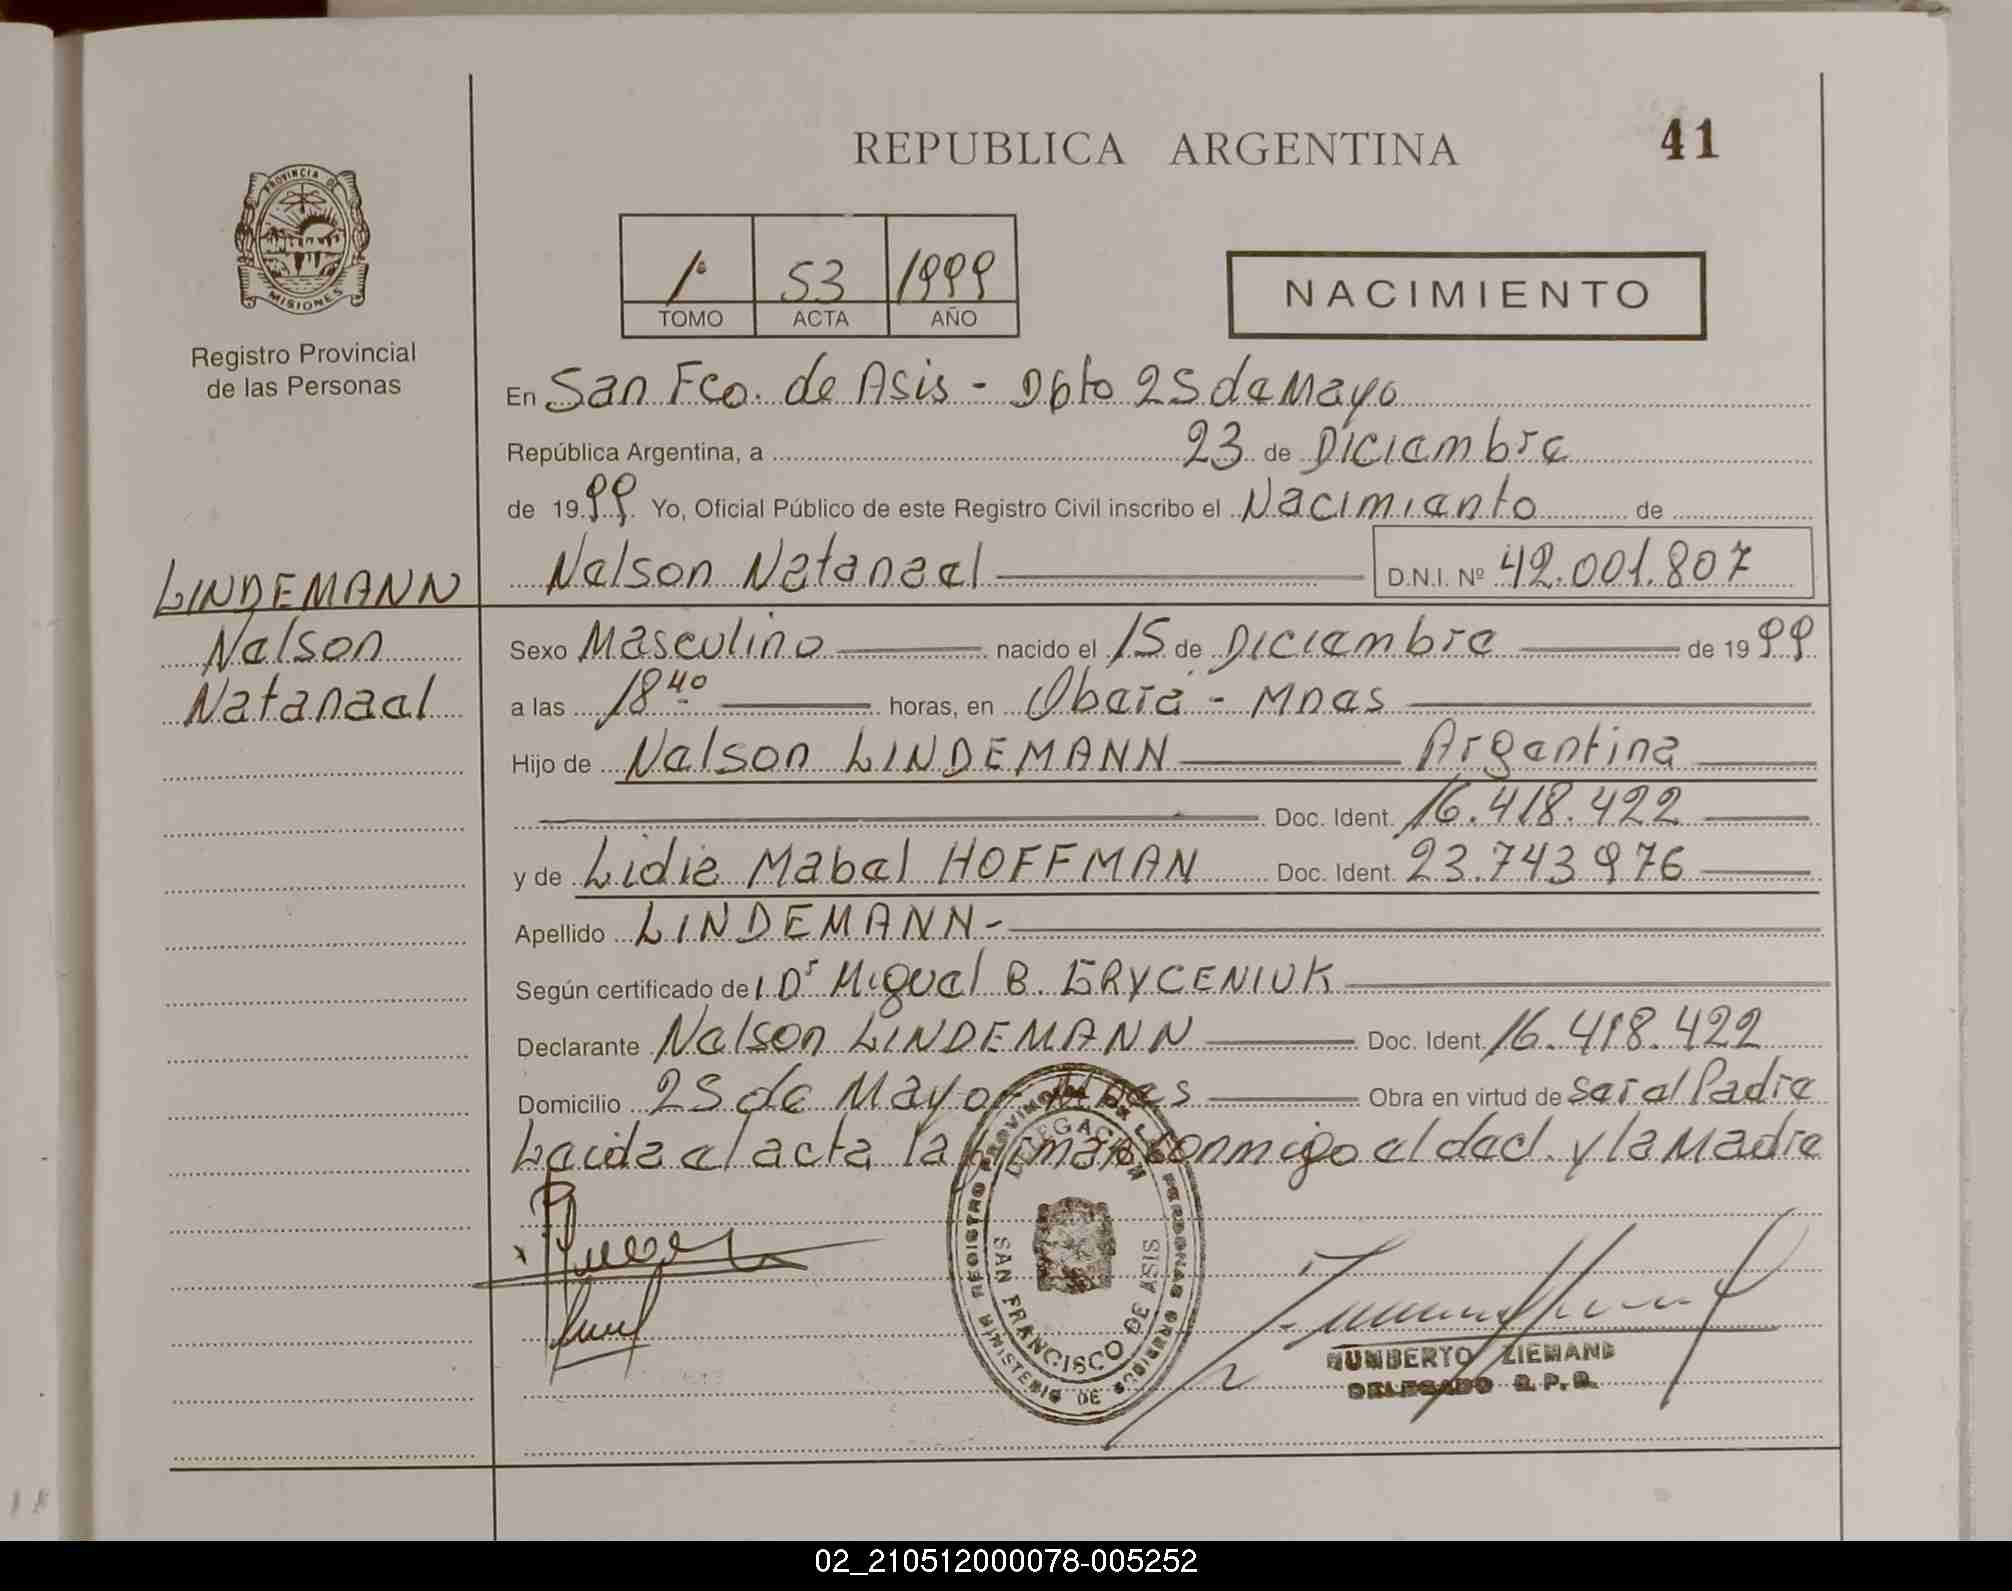 REPUBLICA ARGENTINA
41
PROVINCIA DE
MISIONES
Registro Provincial
de las Personas
1º 53 1999
TOMO ACTA AÑO
NACIMIENTO
En San Fco. de Asis - Dpto 25 de Mayo
República Argentina, a 23 de Diciembre
de 1999 Yo, Oficial Público de este Registro Civil inscribo el Nacimiento de
Nelson Natanael D.N.I. Nº 42.001.807
LINDEMANN
Nelson
Natanael
Sexo Masculino nacido el 15 de Diciembre de 1999
a las 18 40 horas, en Oberá - Mnes
Hijo de Nelson LINDEMANN Argentina
Doc. Ident. 16.418.422
y de Lidia Mabel HOFFMAN Doc. Ident. 23.743.976
Apellido LINDEMANN-
Según certificado del Dr Miguel B. GRYCENIUK
Declarante Nelson LINDEMANN Doc. Ident. 16.418.422
Domicilio 25 de Mayo - Mnes Obra en virtud de ser el Padre
Leida el acta la firman conmigo el decl. y la Madre
REGISTRO PROVINCIAL DE LAS PERSONAS
DELEGACION
SAN FRANCISCO DE ASIS
MINISTERIO DE GOBIERNO
HUMBERTO ZIEMANN
DELEGADO R. P. P.
02_210512000078-005252